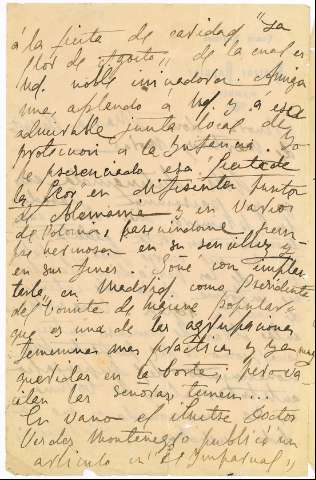 á la fiesta de caridad "La
flor de Agosto", de la cual es
Ud. noble iniciadora.
me, aplaudo á Ud. y á esa
admirable junta local de
protección á la Infancia. Yo
he presenciado esa fiesta de
la flor en distintos puntos
de Alemania y en varios
de Polonia, pareciéndome siem-
pre hermosa en su sencillez y
en sus fines. Soñé con implan-
tarla en Madrid como Presidente
del "Comité de higiene popular"
que es una de las agrupaciones
femeninas mas practicas y ya muy
queridas en la Corte; pero va-
cilan las señoras, temen...
En vano el ilustre Doctor
Verdes Montenegro publicó un
articulo en "El Imparcial",